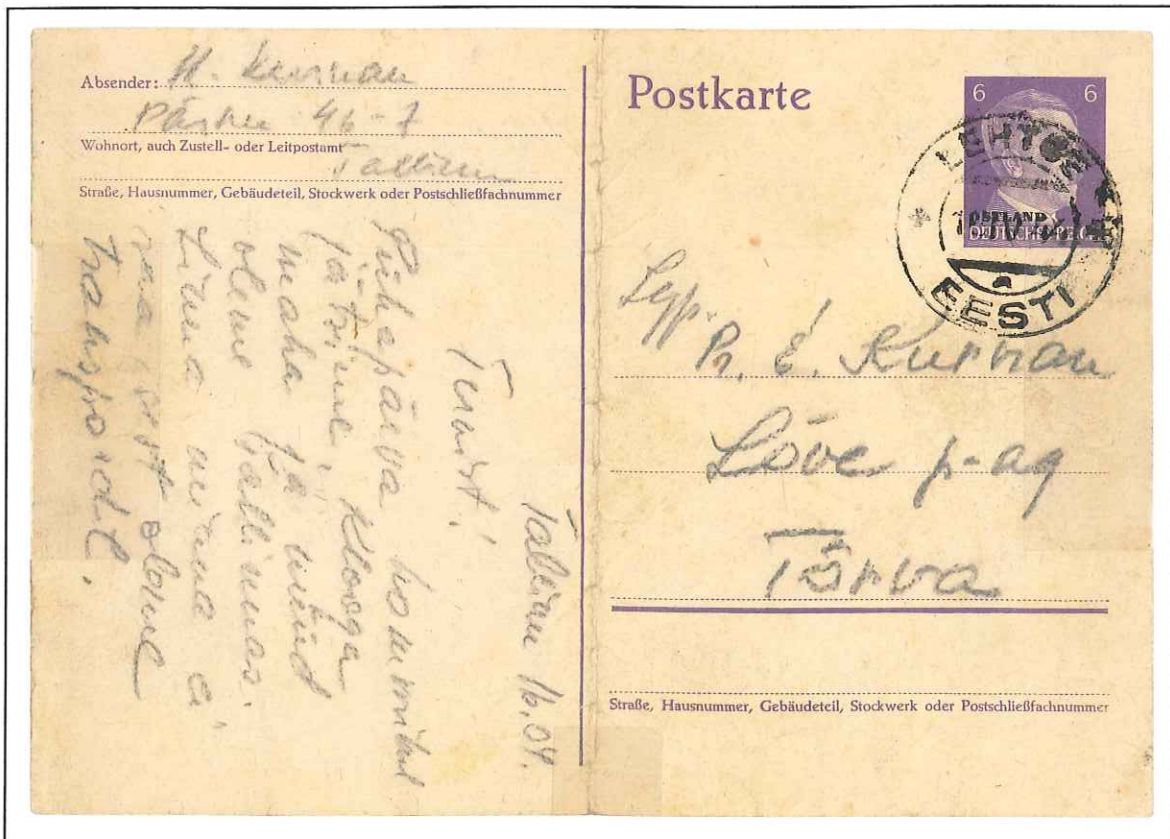 Absender: H. Kurvau
Pärnu 46-7
Wohnort, auch Zustell- oder Leitpostamt
Tallinn
Straße, Hausnummer, Gebäudeteil, Stockwerk oder Postschließfachnummer
Tallinn 16.04.
Pühapäeva hommikul
jätsime Klooga
maha ja nüüd
oleme Tallinnas.
Linna minna ei
saa sest oleme
transpordil.
Postkarte
6 6
OSTLAND
DEUTSCHES REICH
LEHTSE
EESTI
Lgp.
Pr. E. Kurvau
Lõve p-ag
Tõrva
Straße, Hausnummer, Gebäudeteil, Stockwerk oder Postschließfachnummer